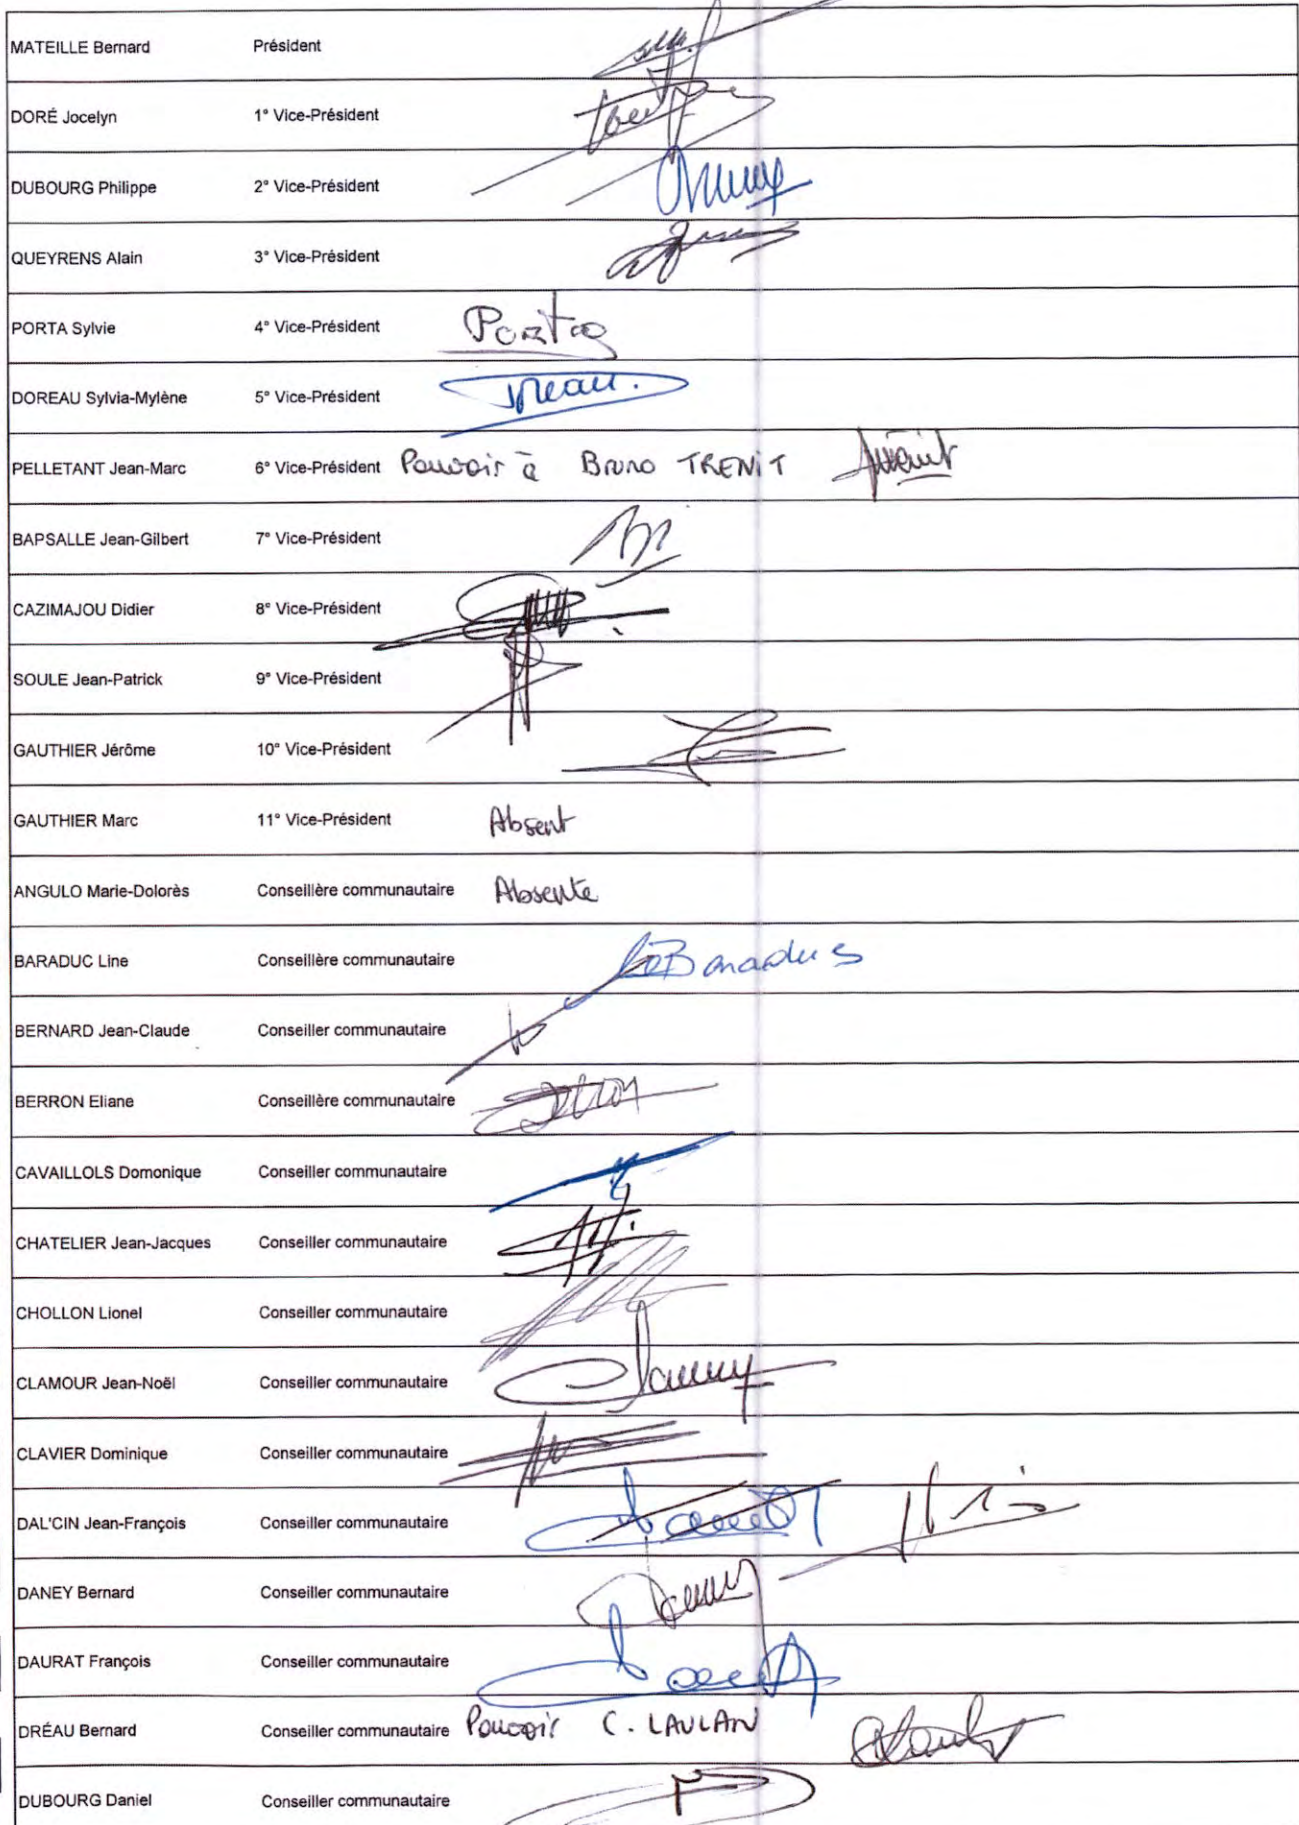 MATEILLE Bernard Président
DORÉ Jocelyn 1° Vice-Président
DUBOURG Philippe 2° Vice-Président
QUEYRENS Alain 3° Vice-Président
PORTA Sylvie 4° Vice-Président Porta
DOREAU Sylvia-Mylène 5° Vice-Président
PELLETANT Jean-Marc 6° Vice-Président Pouvoir à Bruno TRENIT
BAPSALLE Jean-Gilbert 7° Vice-Président
CAZIMAJOU Didier 8° Vice-Président
SOULE Jean-Patrick 9° Vice-Président
GAUTHIER Jérôme 10° Vice-Président
GAUTHIER Marc 11° Vice-Président Absent
ANGULO Marie-Dolorès Conseillère communautaire Absente
BARADUC Line Conseillère communautaire
BERNARD Jean-Claude Conseiller communautaire
BERRON Eliane Conseillère communautaire
CAVAILLOLS Domonique Conseiller communautaire
CHATELIER Jean-Jacques Conseiller communautaire
CHOLLON Lionel Conseiller communautaire
CLAMOUR Jean-Noël Conseiller communautaire
CLAVIER Dominique Conseiller communautaire
DAL'CIN Jean-François Conseiller communautaire
DANEY Bernard Conseiller communautaire
DAURAT François Conseiller communautaire
DRÉAU Bernard Conseiller communautaire Pouvoir C. LAULAN
DUBOURG Daniel Conseiller communautaire